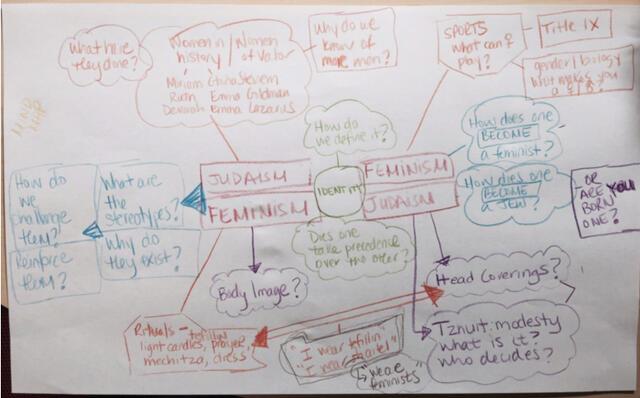 What have
they done?
Women in / Women
history / of valor
Miriam Gloria Steinem
Ruth Emma Goldman
Devorah Emma Lazarus
Why do we
know of
more men?
SPORTS
what can I
play?
Title IX
gender/biology
what makes you
a
MIND
MAP
How do
we define it?
How does one
BECOME
a feminist?
How do
we
challenge
them?
Reinforce
them?
What are
the
stereotypes?
Why do
they exist?
JUDAISM
FEMINISM
IDENTITY
FEMINISM
JUDAISM
How does one
BECOME
a Jew?
OR
ARE YOU
BORN
ONE?
Does one
take precedence
over the other?
Body Image?
Head Coverings?
Rituals - tefillin
light candles, prayer,
mechitza, dress,
"I wear tfillin"
"I wear
"we're
feminists"
Tznuit: modesty
what is it?
who decides?